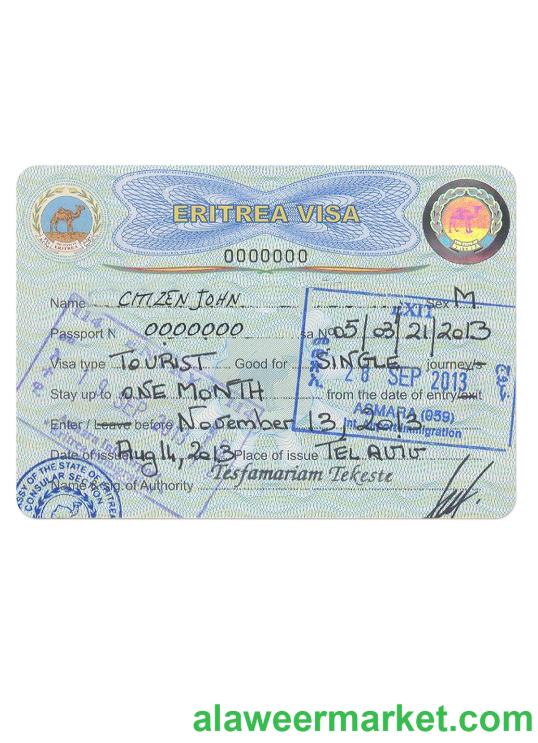 ERITREA VISA
0000000
Name CITIZEN JOHN Sex M
Passport N 0000000 sa No 05/03/21/2013
Visa type TOURIST Good for SINGLE journey/s
Stay up to ONE MONTH from the date of entry/exit
Enter / Leave before November 13, 2013
Date of iss Aug 14, 2013 Place of issue TEL AVIV
Tesfamariam Tekeste
Name & sig. of Authority
EXIT
28 SEP 2013
ASMARA (059)
Immigration
SEP
SY OF THE STATE OF ERITREA
CONSULAR SECTION
alaweermarket.com